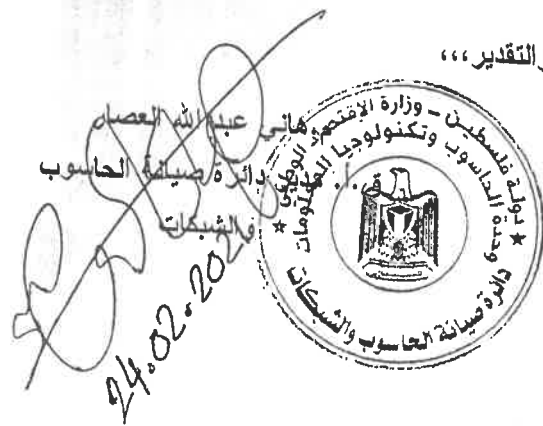 والتقدير،،،
هاني عبد الله العصار
دائرة صيانة الحاسوب
والشبكات
دولة فلسطين - وزارة الاقتصاد الوطني
وحدة الحاسوب وتكنولوجيا المعلومات
دائرة صيانة الحاسوب والشبكات
24.02.20